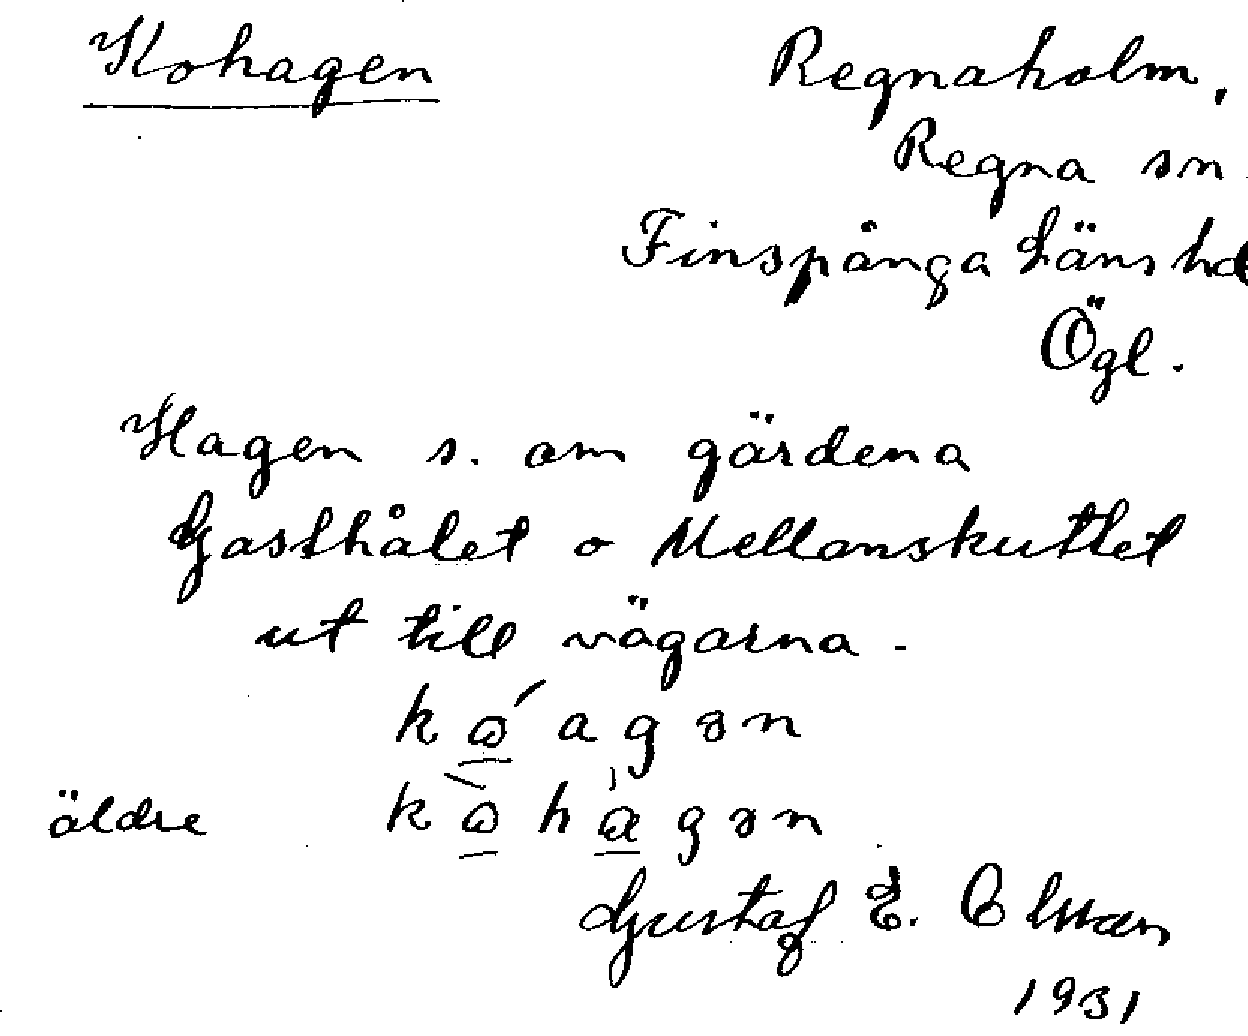 Kohagen
Regnaholm,
Regna sn
Finspånga Läns hd
Ögl.
Hagen s. om gärdena
Gasthålet o Mellanskuttet
ut till vägarna.
kώagən
äldre kὼhagən
Gustaf E.
1931